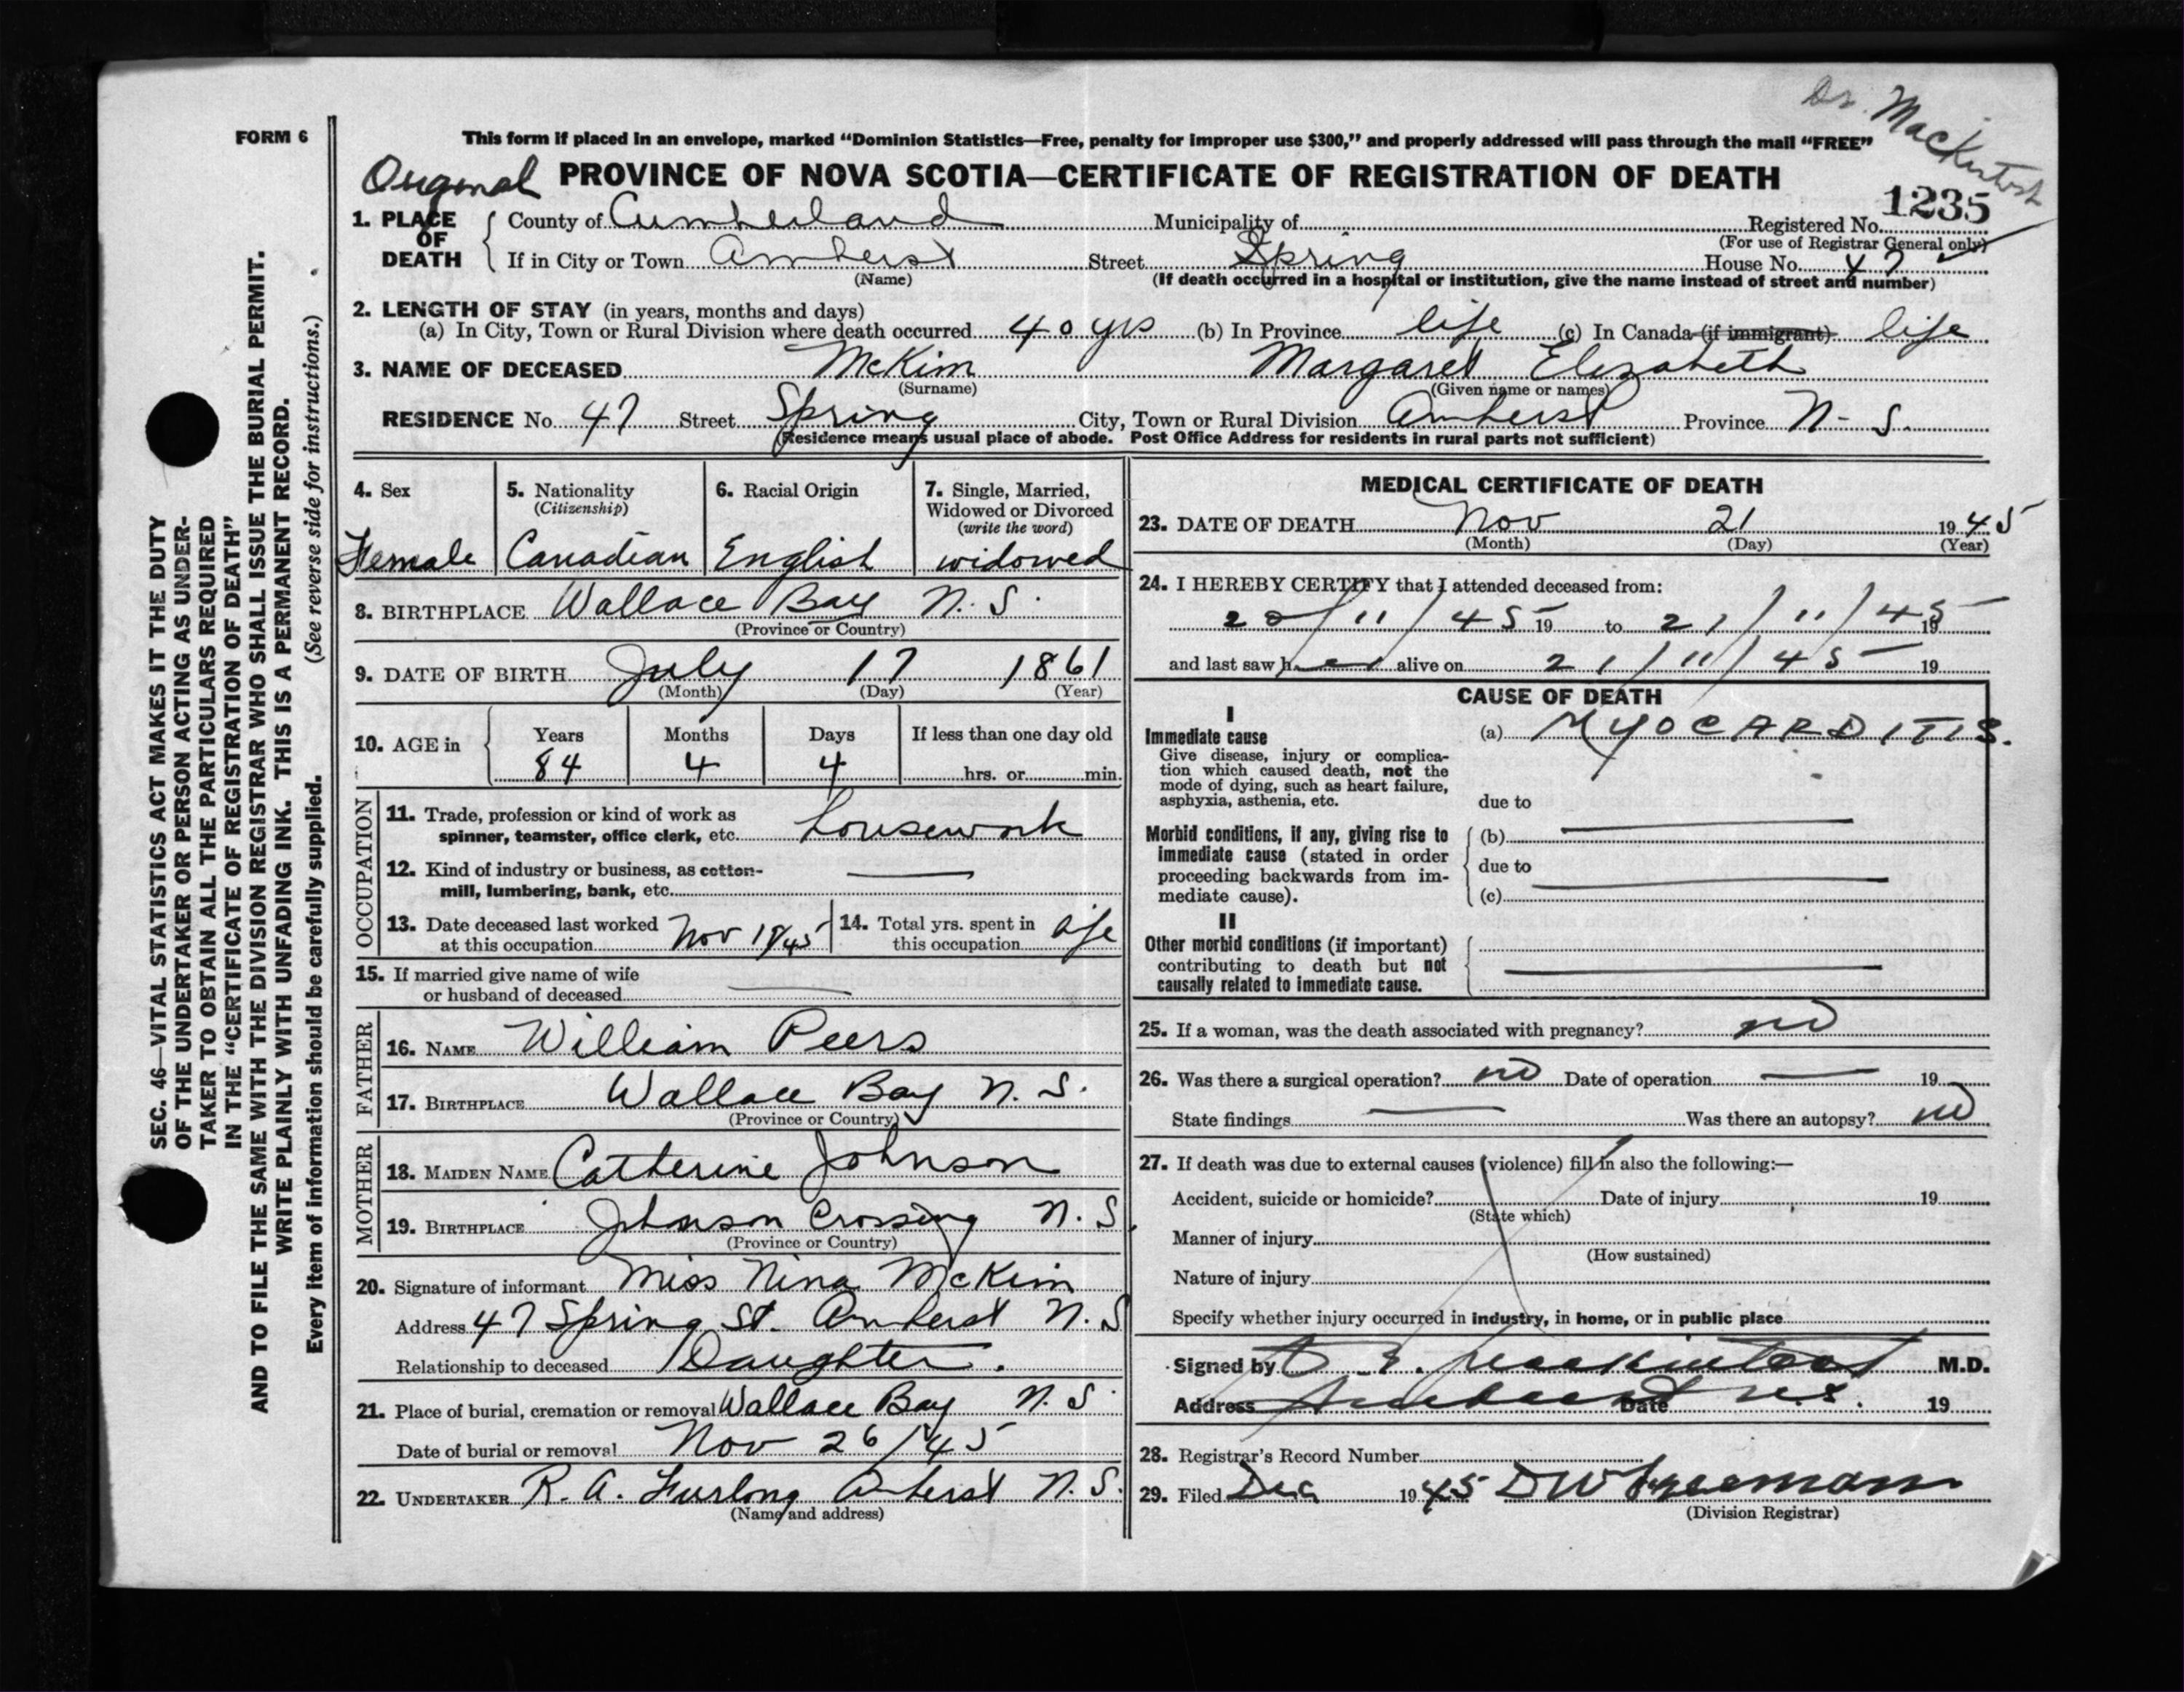 Dr. MacKintosh
FORM 6
This form if placed in an envelope, marked “Dominion Statistics—Free, penalty for improper use $300,” and properly addressed will pass through the mail “FREE”
Original PROVINCE OF NOVA SCOTIA—CERTIFICATE OF REGISTRATION OF DEATH
1235
1. PLACE OF DEATH
County of Cumberland Municipality of Registered No.
(For use of Registrar General only)
If in City or Town Amherst Street Spring House No. 47
(Name) (If death occurred in a hospital or institution, give the name instead of street and number)
2. LENGTH OF STAY (in years, months and days)
(a) In City, Town or Rural Division where death occurred 40 yrs (b) In Province life (c) In Canada (if immigrant) life
3. NAME OF DECEASED McKim Margaret Elizabeth
(Surname) (Given name or names)
RESIDENCE No. 47 Street Spring City, Town or Rural Division Amherst Province N-S.
(Residence means usual place of abode. Post Office Address for residents in rural parts not sufficient)
4. Sex
Female
5. Nationality
(Citizenship)
Canadian
6. Racial Origin
English
7. Single, Married,
Widowed or Divorced
(write the word)
widowed
8. BIRTHPLACE Wallace Bay N.S.
(Province or Country)
9. DATE OF BIRTH July 17 1861
(Month) (Day) (Year)
10. AGE in
Years Months Days If less than one day old
84 4 4 hrs. or min.
OCCUPATION
11. Trade, profession or kind of work as
spinner, teamster, office clerk, etc. housework
12. Kind of industry or business, as cotton-
mill, lumbering, bank, etc.
13. Date deceased last worked
at this occupation Nov 19/45
14. Total yrs. spent in
this occupation life
15. If married give name of wife
or husband of deceased
FATHER
16. NAME William Peers
17. BIRTHPLACE Wallace Bay N.S.
(Province or Country)
MOTHER
18. MAIDEN NAME Catherine Johnson
19. BIRTHPLACE Johnson Crossing N.S.
(Province or Country)
20. Signature of informant Miss Nina McKim
Address 47 Spring St. Amherst N.S
Relationship to deceased Daughter.
21. Place of burial, cremation or removal Wallace Bay N.S.
Date of burial or removal Nov 26/45
22. UNDERTAKER R. A. Furlong Amherst N.S.
(Name and address)
MEDICAL CERTIFICATE OF DEATH
23. DATE OF DEATH Nov 21 1945
(Month) (Day) (Year)
24. I HEREBY CERTIFY that I attended deceased from:
20/11/45 19 to 21/11/45 19
and last saw her alive on 21/11/45 19
CAUSE OF DEATH
I
Immediate cause
Give disease, injury or complica-
tion which caused death, not the
mode of dying, such as heart failure,
asphyxia, asthenia, etc.
(a) MYOCARDITIS.
due to
Morbid conditions, if any, giving rise to
immediate cause (stated in order
proceeding backwards from im-
mediate cause).
(b)
due to
(c)
II
Other morbid conditions (if important)
contributing to death but not
causally related to immediate cause.
25. If a woman, was the death associated with pregnancy? no
26. Was there a surgical operation? no Date of operation 19
State findings Was there an autopsy? no
27. If death was due to external causes (violence) fill in also the following:—
Accident, suicide or homicide? Date of injury 19
(State which)
Manner of injury
(How sustained)
Nature of injury
Specify whether injury occurred in industry, in home, or in public place
Signed by E. Mackintosh M.D.
Address Amherst N.S. Date 19
28. Registrar's Record Number
29. Filed Dec 1945 DW Freeman
(Division Registrar)
SEC. 46—VITAL STATISTICS ACT MAKES IT THE DUTY
OF THE UNDERTAKER OR PERSON ACTING AS UNDER-
TAKER TO OBTAIN ALL THE PARTICULARS REQUIRED
IN THE “CERTIFICATE OF REGISTRATION OF DEATH”
AND TO FILE THE SAME WITH THE DIVISION REGISTRAR WHO SHALL ISSUE THE BURIAL PERMIT.
WRITE PLAINLY WITH UNFADING INK. THIS IS A PERMANENT RECORD.
Every item of information should be carefully supplied. (See reverse side for instructions.)